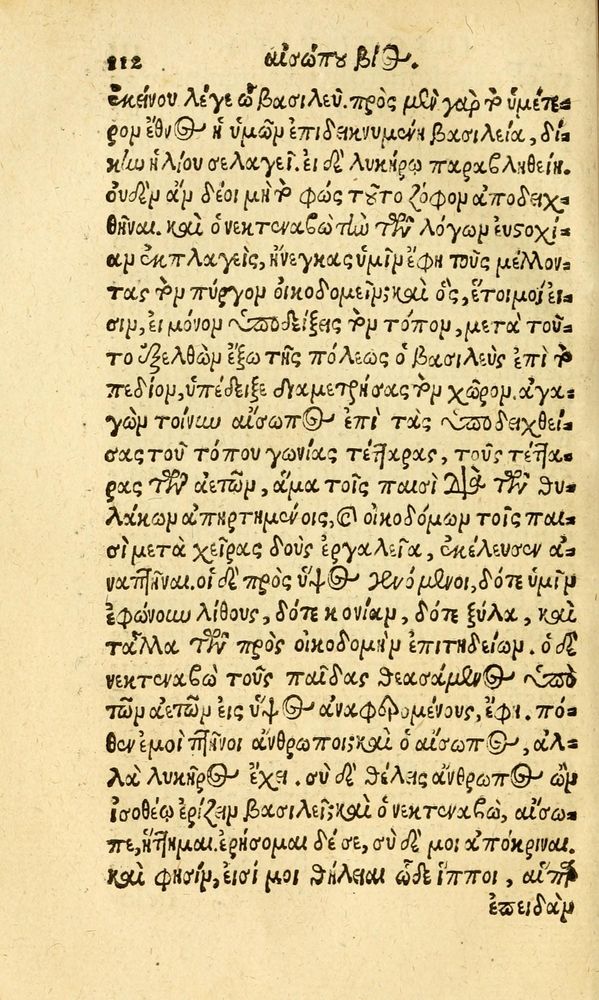 112 αἰσώπου βίος.
ἐκείνου λέγε ὦ βασιλεῦ. πρὸς μὲν γὰρ τὸ ὑμέτε-
ρον ἔθνος ἡ ὑμῶν ἐπιδεικνυμένη βασιλεία, δί-
κην ἡλίου σελαγεῖ. εἰ δὲ λυκήρῳ παραβληθείη.
οὐδὲν ἂν δέοι μὴ τὸ φῶς τοῦτο ζόφον ἀποδειχ-
θῆναι. καὶ ὁ νεκτεναβὼ τὴν τῶν λόγων εὐστοχί-
αν ἐκπλαγεὶς, ἤνεγκας ὑμῖν ἔφη τοὺς μέλλον-
τας τὸν πύργον οἰκοδομεῖν; καὶ ὃς, ἕτοιμοί εἰ-
σιν, εἰ μόνον ὑποδείξεις τὸν τόπον, μετὰ τοῦ-
το ἐξελθὼν ἔξω τῆς πόλεως ὁ βασιλεὺς ἐπὶ τὸ
πεδίον, ὑπέδειξε διαμετρήσας τὸν χῶρον. ἀγα-
γὼν τοίνυν αἴσωπος ἐπὶ τὰς ὑποδειχθεί-
σας τοῦ τόπου γωνίας τέτταρας, τοὺς τέττα-
ρας τῶν ἀετῶν, ἅμα τοῖς παισὶ διὰ τῶν θυ-
λάκων ἀπηρτημένοις, καὶ οἰκοδόμων τοῖς παι-
σὶ μετὰ χεῖρας δοὺς ἐργαλεῖα, ἐκέλευσεν ἀ-
ναπτῆναι. οἱ δὲ πρὸς ὕψος γενόμενοι, δότε ὑμῖν
ἐφώνουν λίθους, δότε κονίαν, δότε ξύλα, καὶ
τἆλλα τῶν πρὸς οἰκοδομὴν ἐπιτηδείων. ὁ δὲ
νεκτεναβὼ τοὺς παῖδας θεασάμενος ὑπὸ
τῶν ἀετῶν εἰς ὕψος ἀναφερομένους, ἔφη. πό-
θεν ἐμοὶ πτηνοὶ ἄνθρωποι; καὶ ὁ αἴσωπος, ἀλ-
λὰ λυκῆρος ἔχει. σὺ δὲ θέλεις ἄνθρωπος ὢν
ἰσοθέῳ ἐρίζειν βασιλεῖ; καὶ ὁ νεκτεναβὼ, αἴσω-
πε, ἥττημαι. ἐρήσομαι δέ σε, σὺ δέ μοι ἀπόκριναι.
καὶ φησὶν, εἰσί μοι θήλειαι ὧδε ἵπποι, αἵπερ
ἐπειδὰν